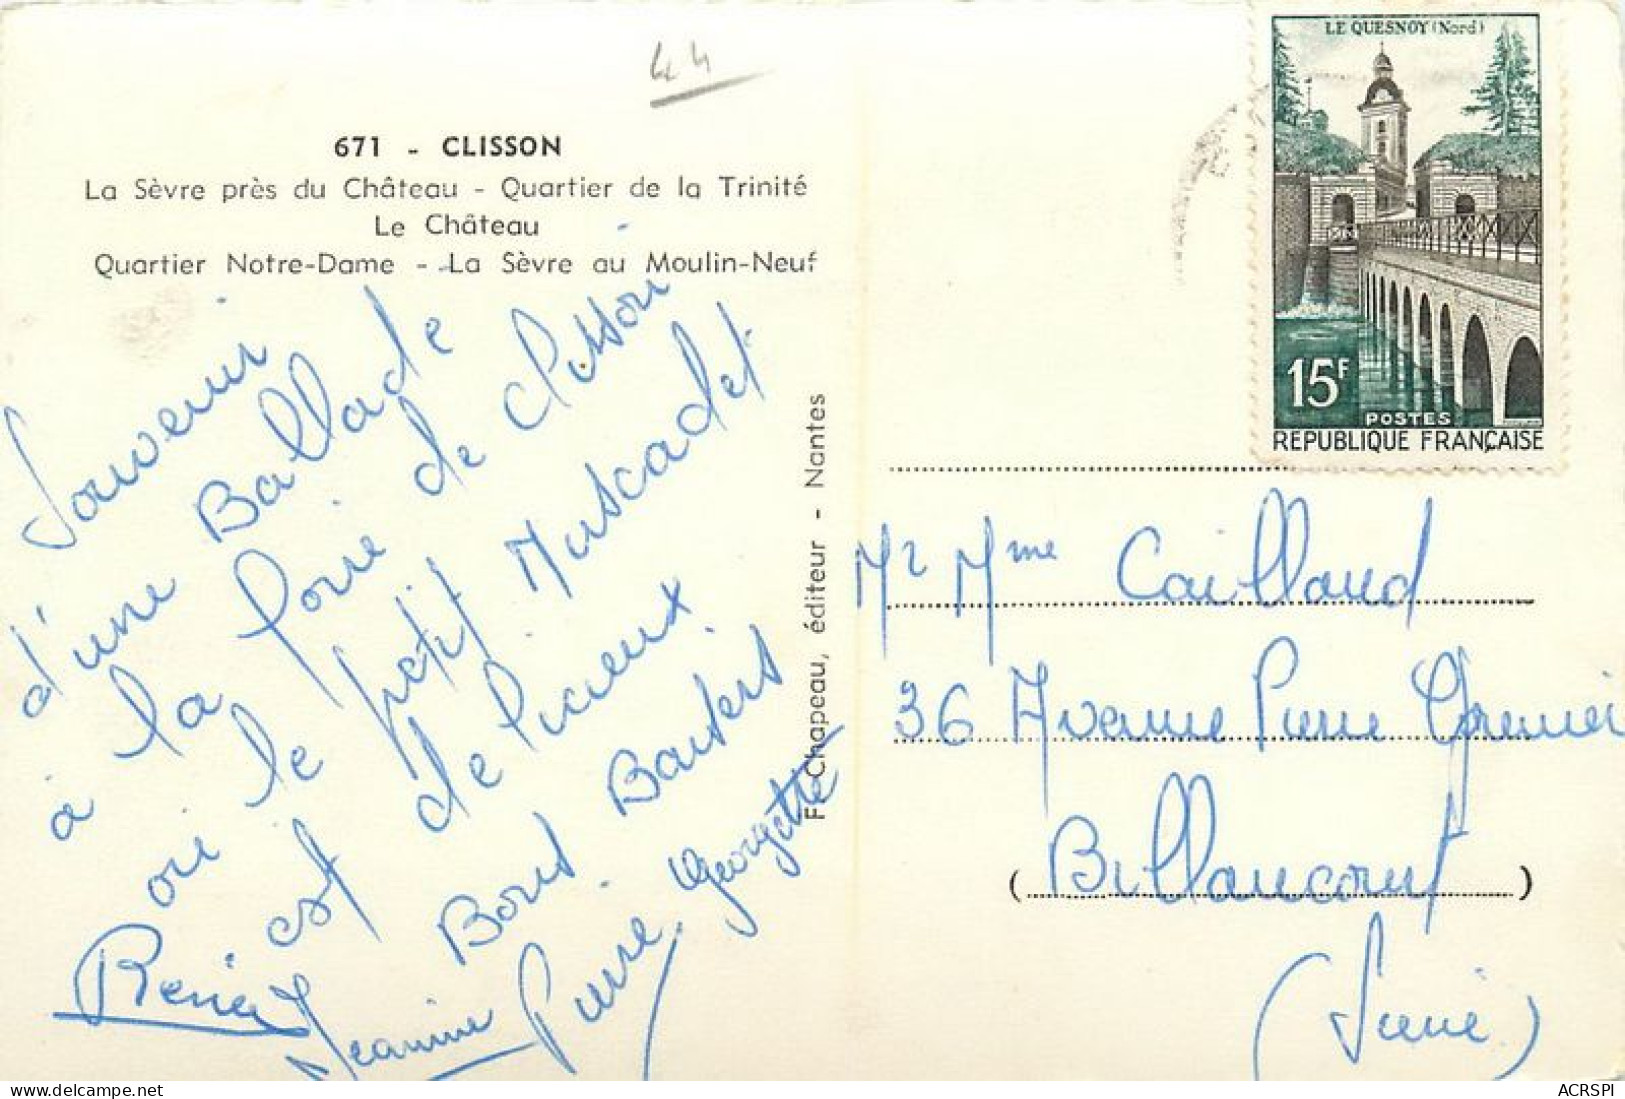 44
671 - CLISSON
La Sèvre près du Château - Quartier de la Trinité
Le Château
Quartier Notre-Dame - La Sèvre au Moulin-Neuf
Souvenir
d'une Ballade
à la foire de Clisson
où le petit Muscadet
est délicieux
Bons Baisers
René Jeanine Pierre Georgette
F. Chapeau, éditeur - Nantes
LE QUESNOY (Nord)
15F
POSTES
REPUBLIQUE FRANÇAISE
Mr Mme Caillaud
36 Avenue Pierre Grenier
(Billancourt)
(Seine)
ACRSPI